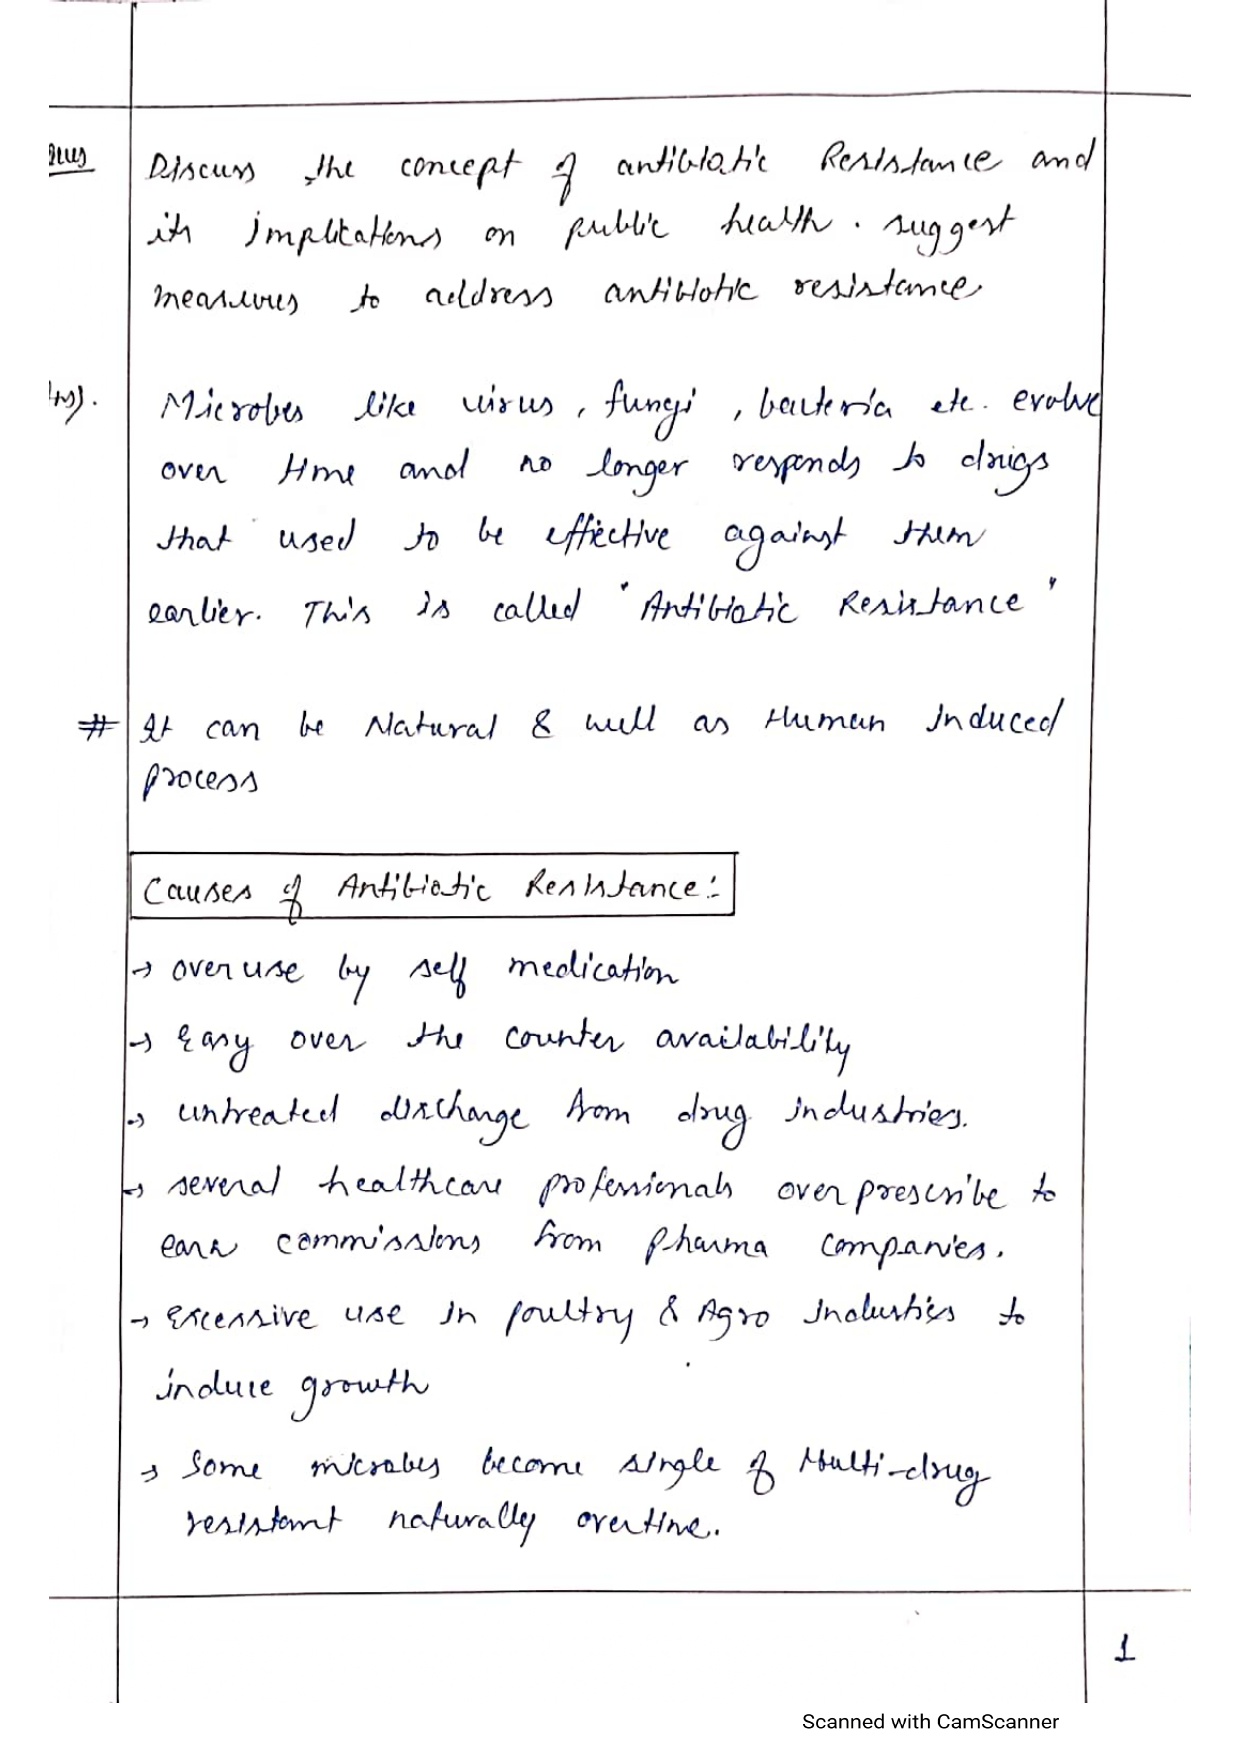 Ques Discuss the concept of antibiotic Resistance and
its implications on public health. suggest
measures to address antibiotic resistance
Ans). Microbes like virus, fungi, bacteria etc. evolve
over time and no longer responds to drugs
that used to be effective against them
earlier. This is called "Antibiotic Resistance"
# It can be Natural & well as Human Induced
process
Causes of Antibiotic Resistance:-
→ overuse by self medication
→ Easy over the counter availability
→ untreated discharge from drug industries.
→ several healthcare professionals over prescribe to
earn commissions from pharma companies.
→ Excessive use in poultry & Agro industries to
induce growth
→ Some microbes become single of Multi-drug
resistant naturally overtime.
1
Scanned with CamScanner